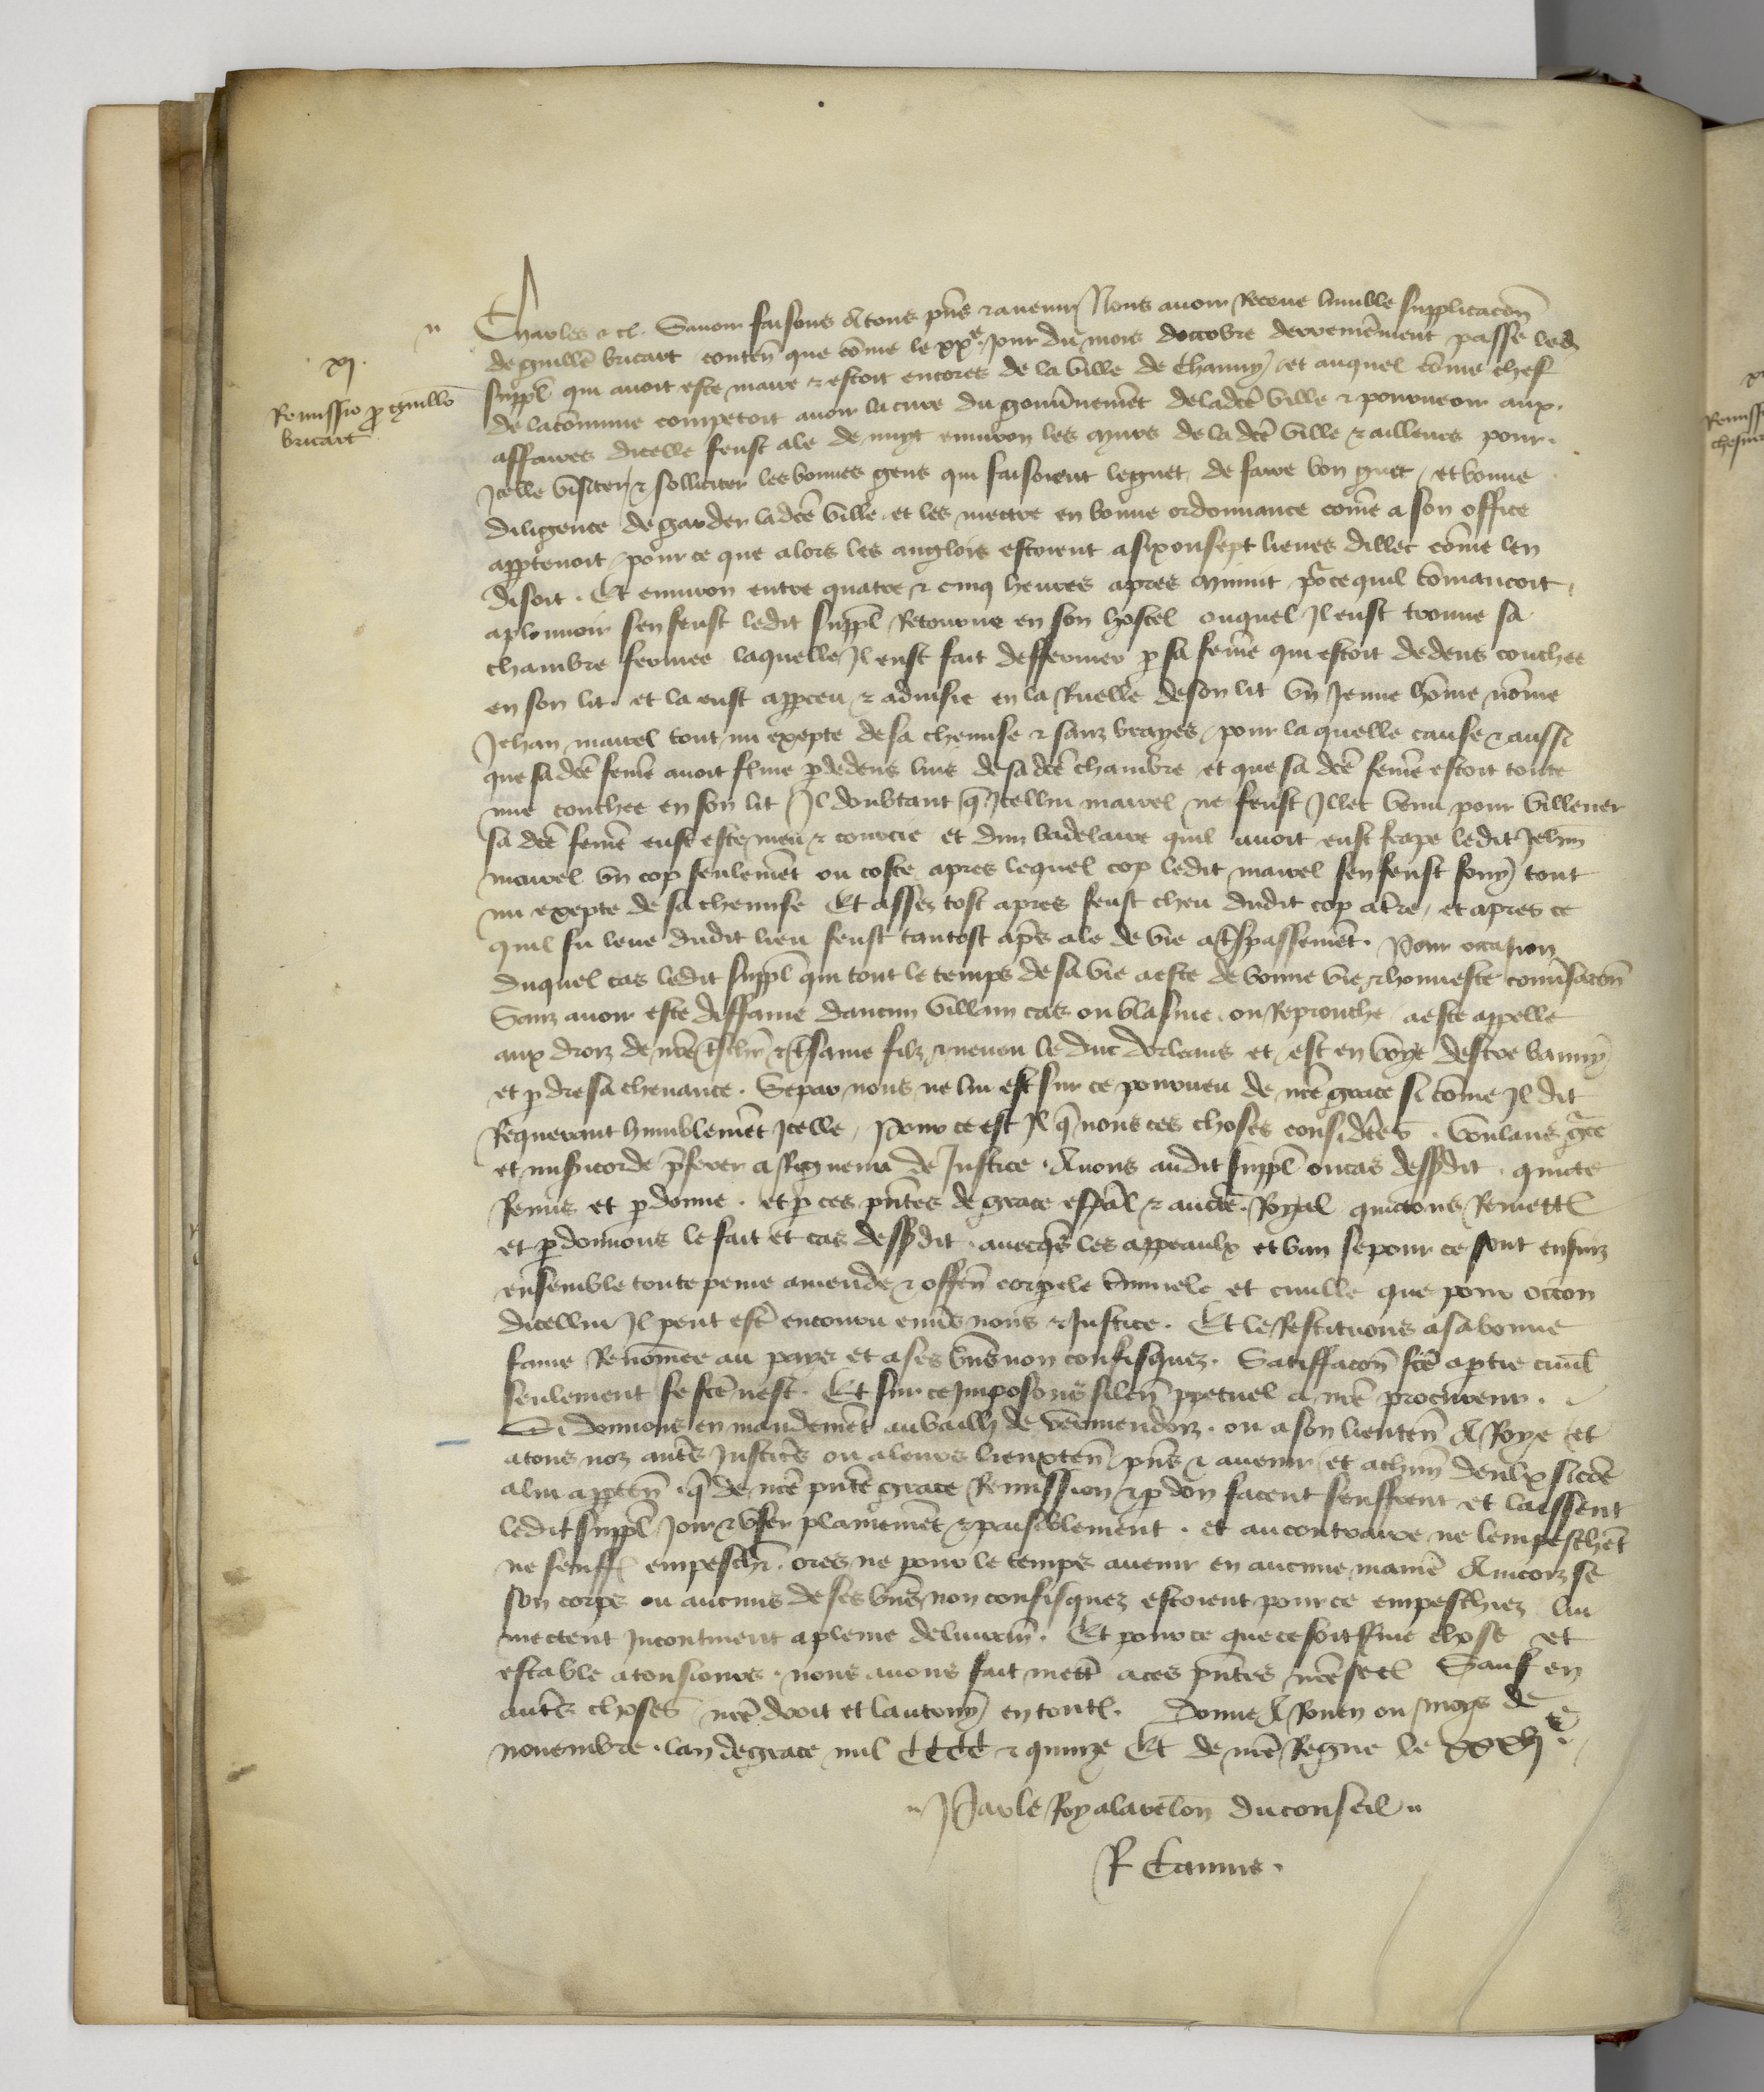 xj.
Remissio p guillo
bricart
Charles & cl. Savoir faisons A tous pns & avenir Nous avoir Receue lumble supplicacon
de guille bricart conten que come le xxe jour du mois doctobre derrenierement passe led
suppl qui avoit este maire & estoit encores de la ville de Chauny et auquel come chef
de la comune competoit avoir la cure du gouvnemet de la dce ville & pourveoir aux
affaires dicelle feust ale de nuyt environ les murs de la dce ville & ailleurs pour
Icelle visiter & solliciter les bonnes gens qui faisoient le guet de faire bon guet et bonne
diligence de garder la dce ville et les mettre en bonne ordonnance come a son office
apptenoit pour ce que alors les anglois estoient a six ou sept lieues dillec come len
disoit. Et environ entre quatre & cinq heures apres mynuit pr ce quil comancoit
a plouvoir sen feust ledit suppl Retourne en son hostel ouquel Il eust trouve sa
chambre fermee laquelle Il eust fait deffermer p sa feme qui estoit dedens couchee
en son lit. et la eust appceu & advisie en la Ruelle de son lit un Jeune home nome
Jehan mairel tout nu exepte de sa chemise & sanz brayes pour la quelle cause & aussi
que sa dce feme avoit fme p dedens luis de sa dce chambre et que sa dce feme estoit toute
nue couchee en son lit Il doubtant q Icellui mairel ne feust Illec venu pour villener
sa dce feme eust este meu & courcie et dun badelaire quil avoit eust frape ledit Jehan
mairel un cop seulemet ou coste apres lequel cop ledit mairel sen feust fouy tout
nu exepte de sa chemise Et assez tost apres feust cheu dudit cop a tre, et apres ce
quil fu leve dudit lieu feust tantost aps ale de vie a tspassemet. Pour occasion
duquel cas ledit suppl qui tout le temps de sa vie a este de bonne vie & honneste convsacon
Sanz avoir este diffame daucun villain cas ou blasme ou Reprouche a este appelle
aux droiz de nre tschr & tsame filz & neveu le duc dorleans et est en voye destre banny
et p dre sa chevance. Se par nous ne lui est sur ce pourveu de nre grace si come Il dit
Requerant humblemet Icelle, Pour ce est Il q nous ces choses considerees. voulans gre
et misicorde pferer a Rigueur de Justice. Avons audit suppl ou cas dessdit. quicte
Remis et p donne. et p ces pntes de grace espal & aucte Royal quictons Remettl
et p donnons le fait et cas dessdit. avecqs les appeaulx et ban se pour ce sont ensuiz
ensemble toute peine amende & offen corpele cminele et civille que pour occon
dicellui Il peut estr encouru envs nous & Justice. Et le Restituons a sa bonne
fame Renomee au pays et a ses bns non confisquez. Satiffacon fce a ptie civil
seulement se fce nest. Et sur ce Imposons silen ppetuel a nre procureur.
Si donnons en mandemet au bailli de vermendoiz. ou a son lieuten A Roye et
a tous noz autrs Justicrs ou a leurs lieuxten pns & avenir et a chun deulx sicoe
a lui appten q de nre pnte grace Remission & p don facent seuffrent et laissent
ledit suppl Joir & user plainemet & paisiblement. et au contraire ne lempeschet
ne seuffl empeschr. ores ne pour le temps avenir en aucune manie Aincoiz se
son corps ou aucuns de ses bns non confisquez estoient pour ce empeschiez lui
mectent Incontinent a pleine delivran. Et pour ce que ce soit ferme chose et
estable a tousiours. nous avons fait mettr a ces pntes nre seel Sauf en
autrs choses nre droit et lautruy en toutl. Donne A Rouen ou moys de
novembre. lan de grace mil CCCC & quinze Et de nre Regne le xxxvje.
Par le Roy a la relon du conseil
R Camus.